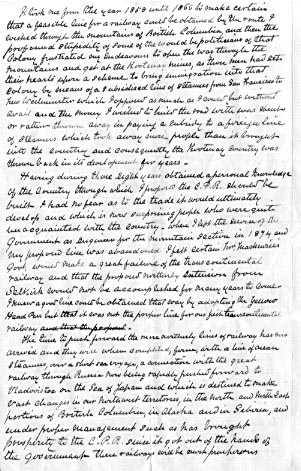 It took me from the year 1858 until 1866 to make certain
that a feasible line for a railway could be obtained by the route I
wished through the mountains of British Columbia, and then the
profound stupidity of some of the would be politicians of that
Colony frustrated my endeavours to open the way through the
mountains and get at the Kootenay mines, as those men had set
their hearts upon a scheme to bring immigration into that
Colony by means of a subsidised line of steamers from San Francisco to
New Westminster which I opposed as much as I could but without
avail and the money I wished to build the road with was thrown
or rather thrown away in paying a subsidy to a foreign line
of steamers which took away more people than it brought
into the country and consequently the Kootenay country was
thrown back in its development for years.
Having during those eight years obtained a personal knowledge
of the Country through which I proposed the C.P.R. should be
built I had no fear as to the trade it would ultimately
develop and which is now surprising people who were quite
unacquainted with the country. When I left the service of the
Government as Engineer for the mountain section in 1874 and
my proposed line was abandoned I felt certain Mr Mackenzies
Govt. would make a great failure of the transcontinental
railway and that the proposed northerly extension from
Selkirk would not be accomplished for many years to come
I knew a good line could be obtained that way by adopting the Yellow
Head Pass but that it was not the proper line for our first transcontinental
railway
The time to push forward the more northerly lines of railway has now
arrived and they will when completed, form, with a line of ocean
steamers, over a short sea voyage, a connection with the great
railway through Russia now being rapidly pushed forward to
Vladivostok on the Sea of Japan and which is destined to make
vast changes in our Northwest territories, in the north and North East
portions of British Columbia, in Alaska and in Siberia, and
under proper management such as has brought
prosperity to the C.P.R. since it got out of the hands of
the government these railways will be most prosperous